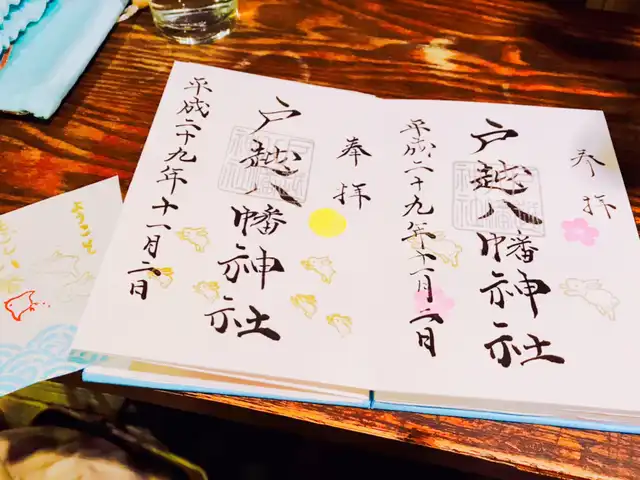 奉拝
戸越八幡神社
平成二十九年十一月二日
奉拝
戸越八幡神社
平成二十九年十一月二日
ようこそ